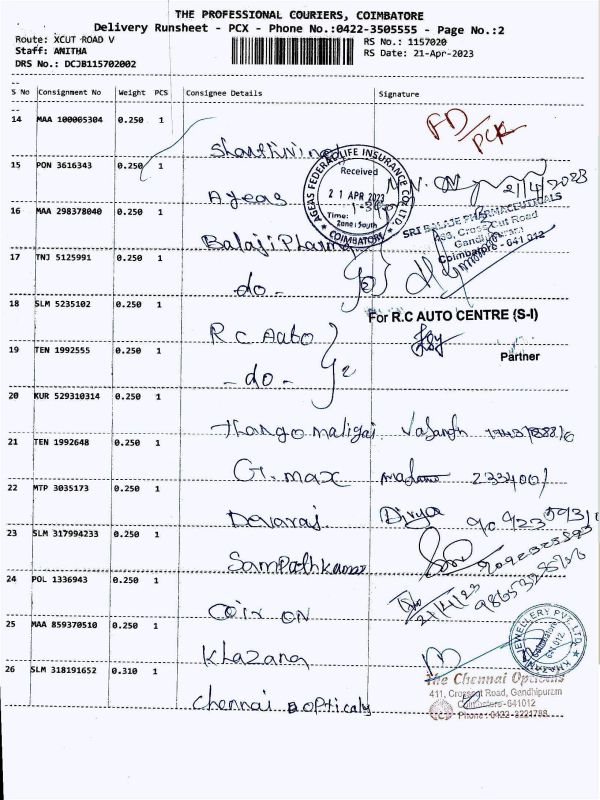 THE PROFESSIONAL COURIERS, COIMBATORE
Delivery Runsheet - PCX - Phone No.:0422-3505555 - Page No.:2
Route: XCUT ROAD V
RS No.: 1157020
Staff: ANITHA
RS Date: 21-Apr-2023
DRS No.: DCJB115702002
S No Consignment No Weight PCS Consignee Details Signature
14 MAA 100005304 0.250 1
FD/PCR
15 PON 3616343 0.250 1 Ageas 21/4/2023
AGEAS FEDERAL LIFE INSURANCE CO LTD.
Received
21 APR 2023
Time:
Zone: South
COIMBATORE
16 MAA 298378040 0.250 1 Balaji Pharma
SRI BALAJE PHARMACEUTICALS
Cross Cut Road
Gandhipuram
Coimbatore - 641 012
17 TNJ 5125991 0.250 1 -do-
18 SLM 5235102 0.250 1 R C Auto
For R.C AUTO CENTRE (S-I)
Partner
19 TEN 1992555 0.250 1 -do-
20 KUR 529310314 0.250 1 Thangomaligai
21 TEN 1992648 0.250 1 G.max 233400/
22 MTP 3035173 0.250 1 Devaraj Divya
23 SLM 317994233 0.250 1 Sampathkumar
24 POL 1336943 0.250 1 Coir ON 21/4/23
25 MAA 859370510 0.250 1 Khazana
KHAZANA JEWELLERY PVT. LTD.
26 SLM 318191652 0.310 1 Chennai opticals
The Chennai Opticals
411, Crosscut Road, Gandhipuram
Coimbatore-641012
Phone: 0422-2221788